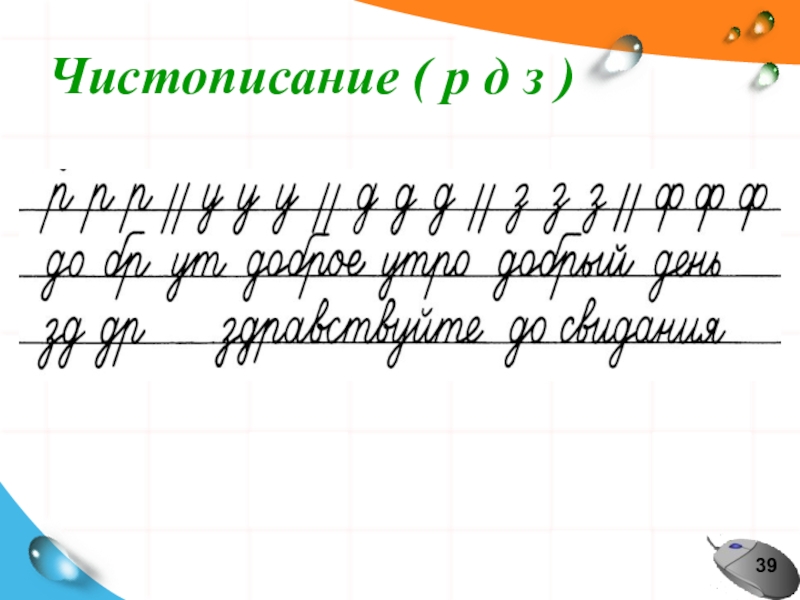 Чистописание ( р д з )
р р р // у у у // д д д // з з з // ф ф ф
до бр ут доброе утро добрый день
зд др здравствуйте до свидания
39